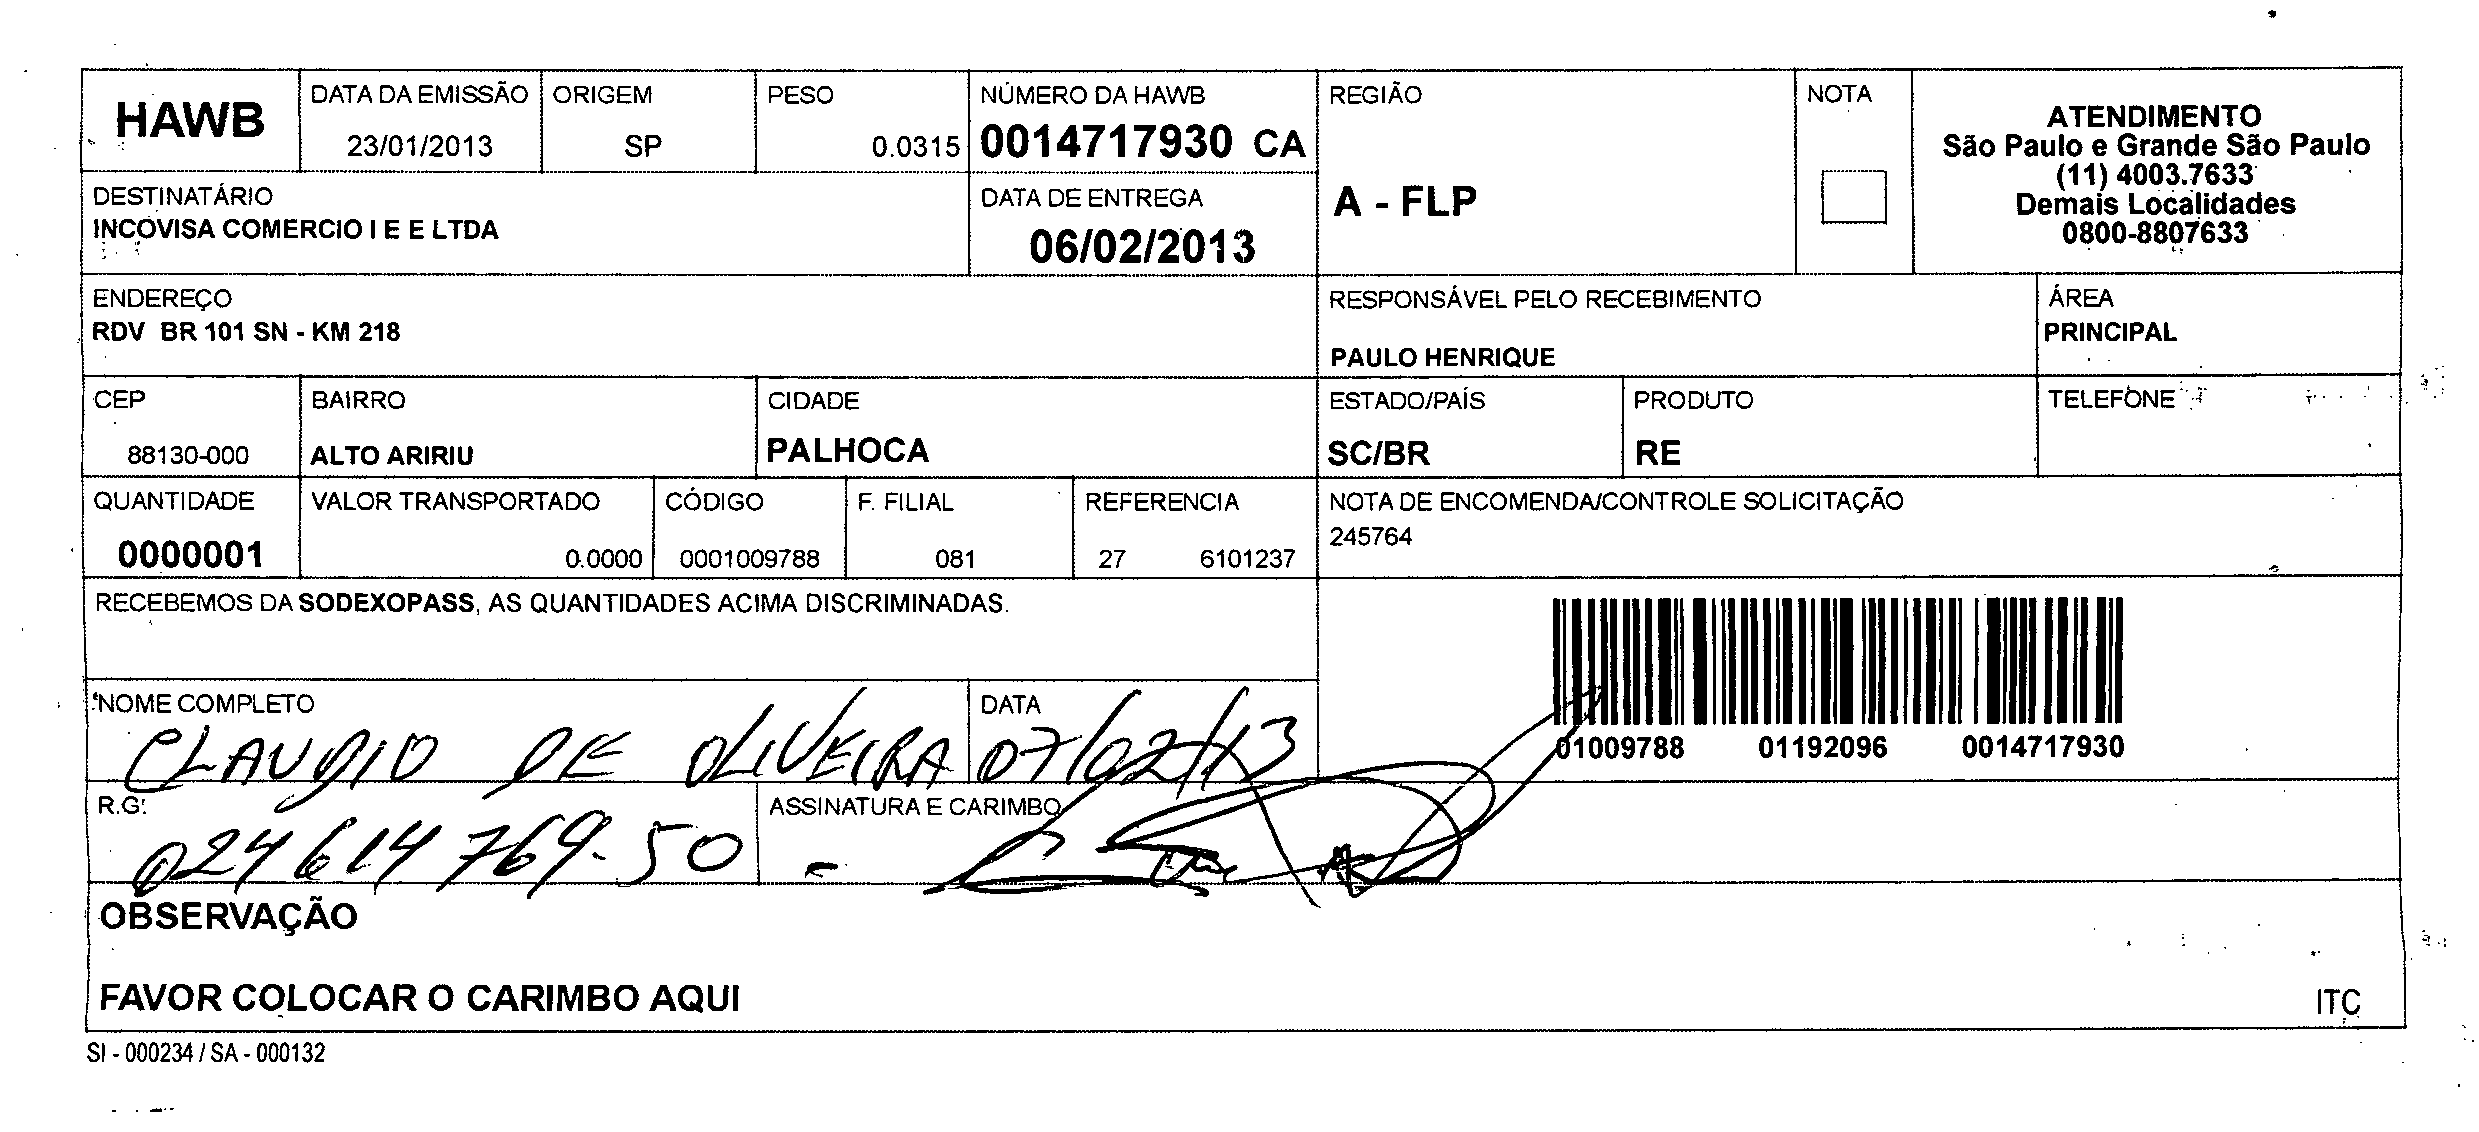 HAWB
DATA DA EMISSÃO
23/01/2013
ORIGEM
SP
PESO
0.0315
NÚMERO DA HAWB
0014717930 CA
REGIÃO
A - FLP
NOTA
ATENDIMENTO
São Paulo e Grande São Paulo
(11) 4003.7633
Demais Localidades
0800-8807633
DESTINATÁRIO
INCOVISA COMERCIO I E E LTDA
DATA DE ENTREGA
06/02/2013
ENDEREÇO
RDV BR 101 SN - KM 218
RESPONSÁVEL PELO RECEBIMENTO
PAULO HENRIQUE
ÁREA
PRINCIPAL
CEP
88130-000
BAIRRO
ALTO ARIRIU
CIDADE
PALHOCA
ESTADO/PAÍS
SC/BR
PRODUTO
RE
TELEFONE
QUANTIDADE
0000001
VALOR TRANSPORTADO
0.0000
CÓDIGO
0001009788
F. FILIAL
081
REFERENCIA
27 6101237
NOTA DE ENCOMENDA/CONTROLE SOLICITAÇÃO
245764
RECEBEMOS DA SODEXOPASS, AS QUANTIDADES ACIMA DISCRIMINADAS.
01009788 01192096 0014717930
NOME COMPLETO
CLAUDIO DE OLIVEIRA
DATA
07/02/13
R.G:
024614769-50
ASSINATURA E CARIMBO
OBSERVAÇÃO
FAVOR COLOCAR O CARIMBO AQUI
ITC
SI - 000234 / SA - 000132